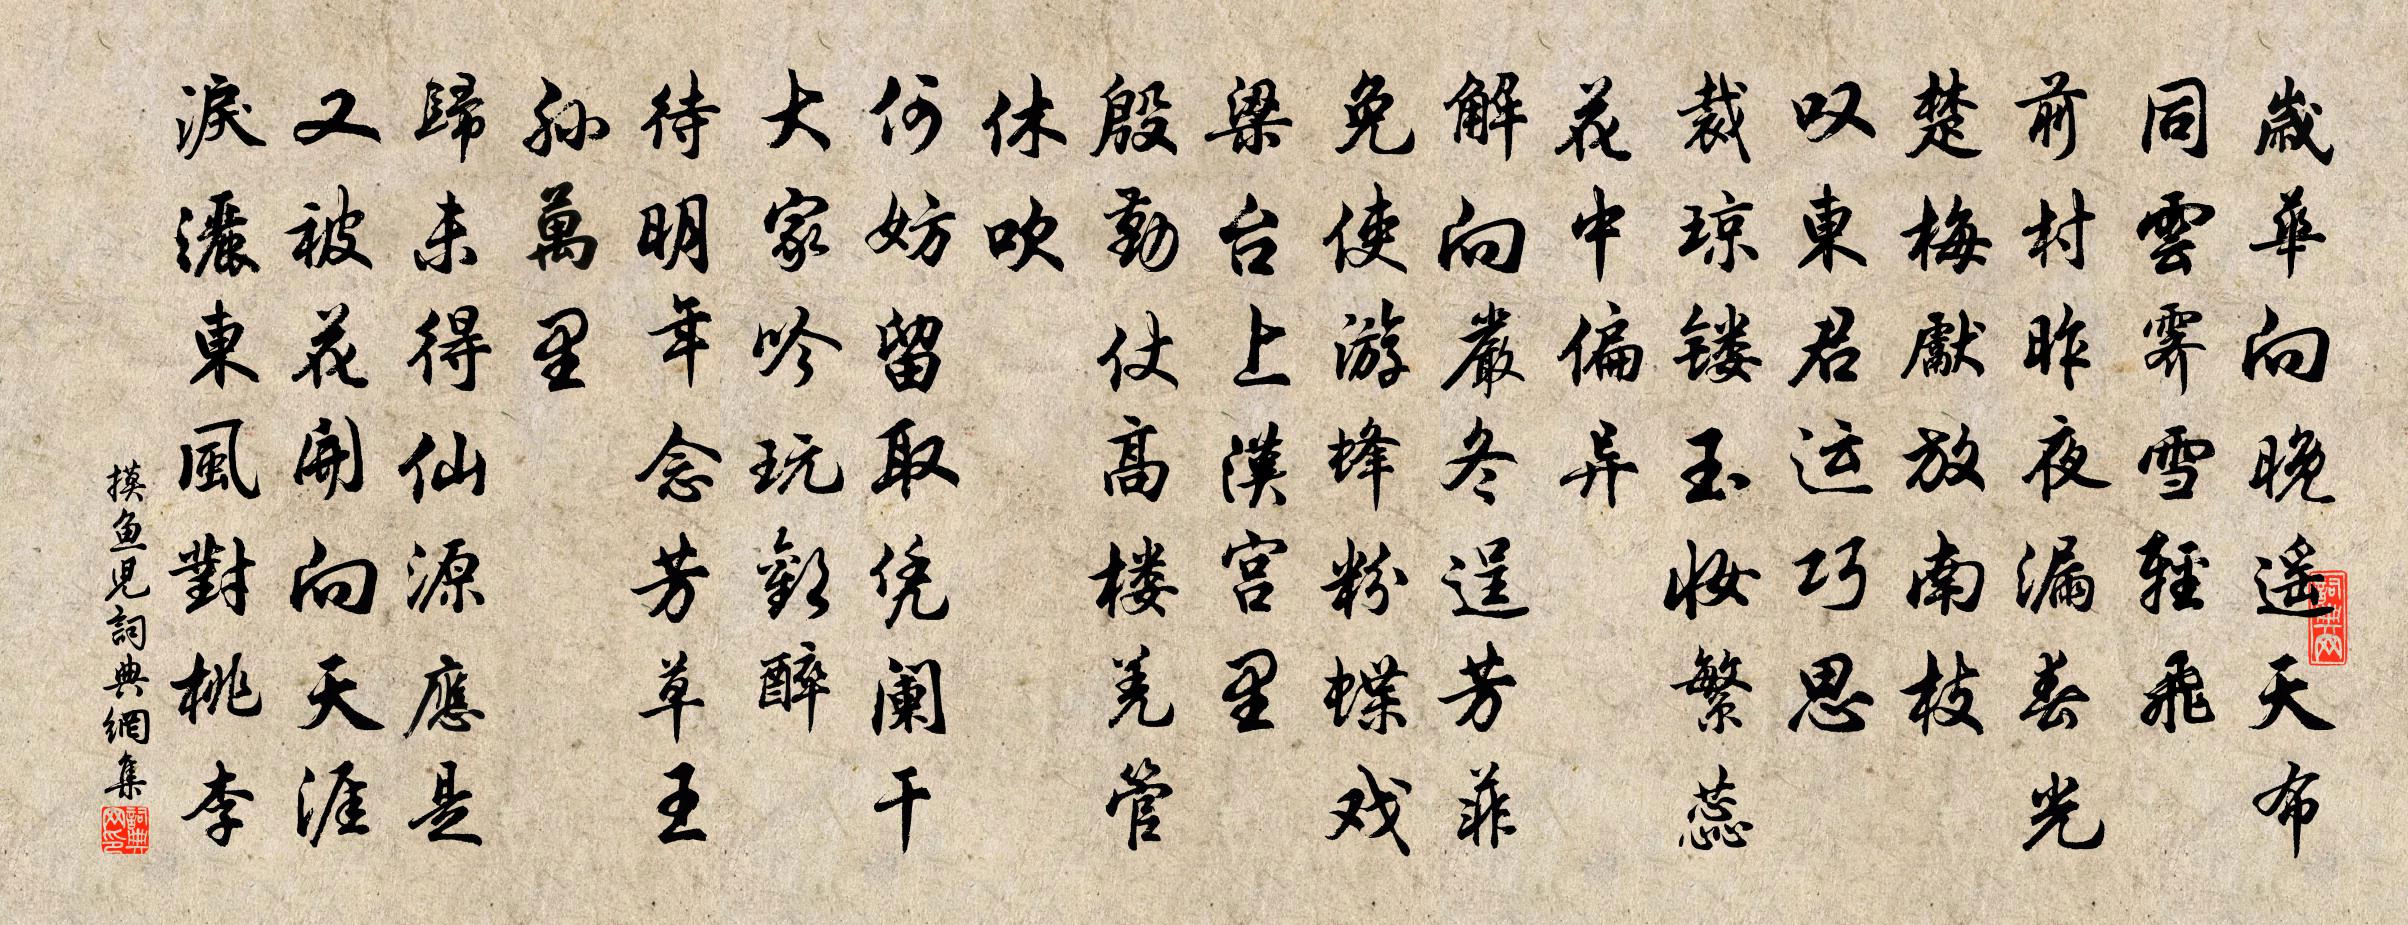 歲華向晚遥天布
同雲霽雪輕飛
前村昨夜漏春光
楚梅獻放南枝
叹東君运巧思
裁琼镂玉妆繁蕊
花中偏异
解向嚴冬逞芳菲
免使游蜂粉蝶戏
梁台上漢宫里
殷勤仗高楼羌管
休吹
何妨留取凭阑干
大家吟玩歡醉
待明年念芳草王
孫萬里
歸未得仙源應是
又被花開向天涯
淚灑東風對桃李
摸魚兒詞典網集
詞典网
詞典网印